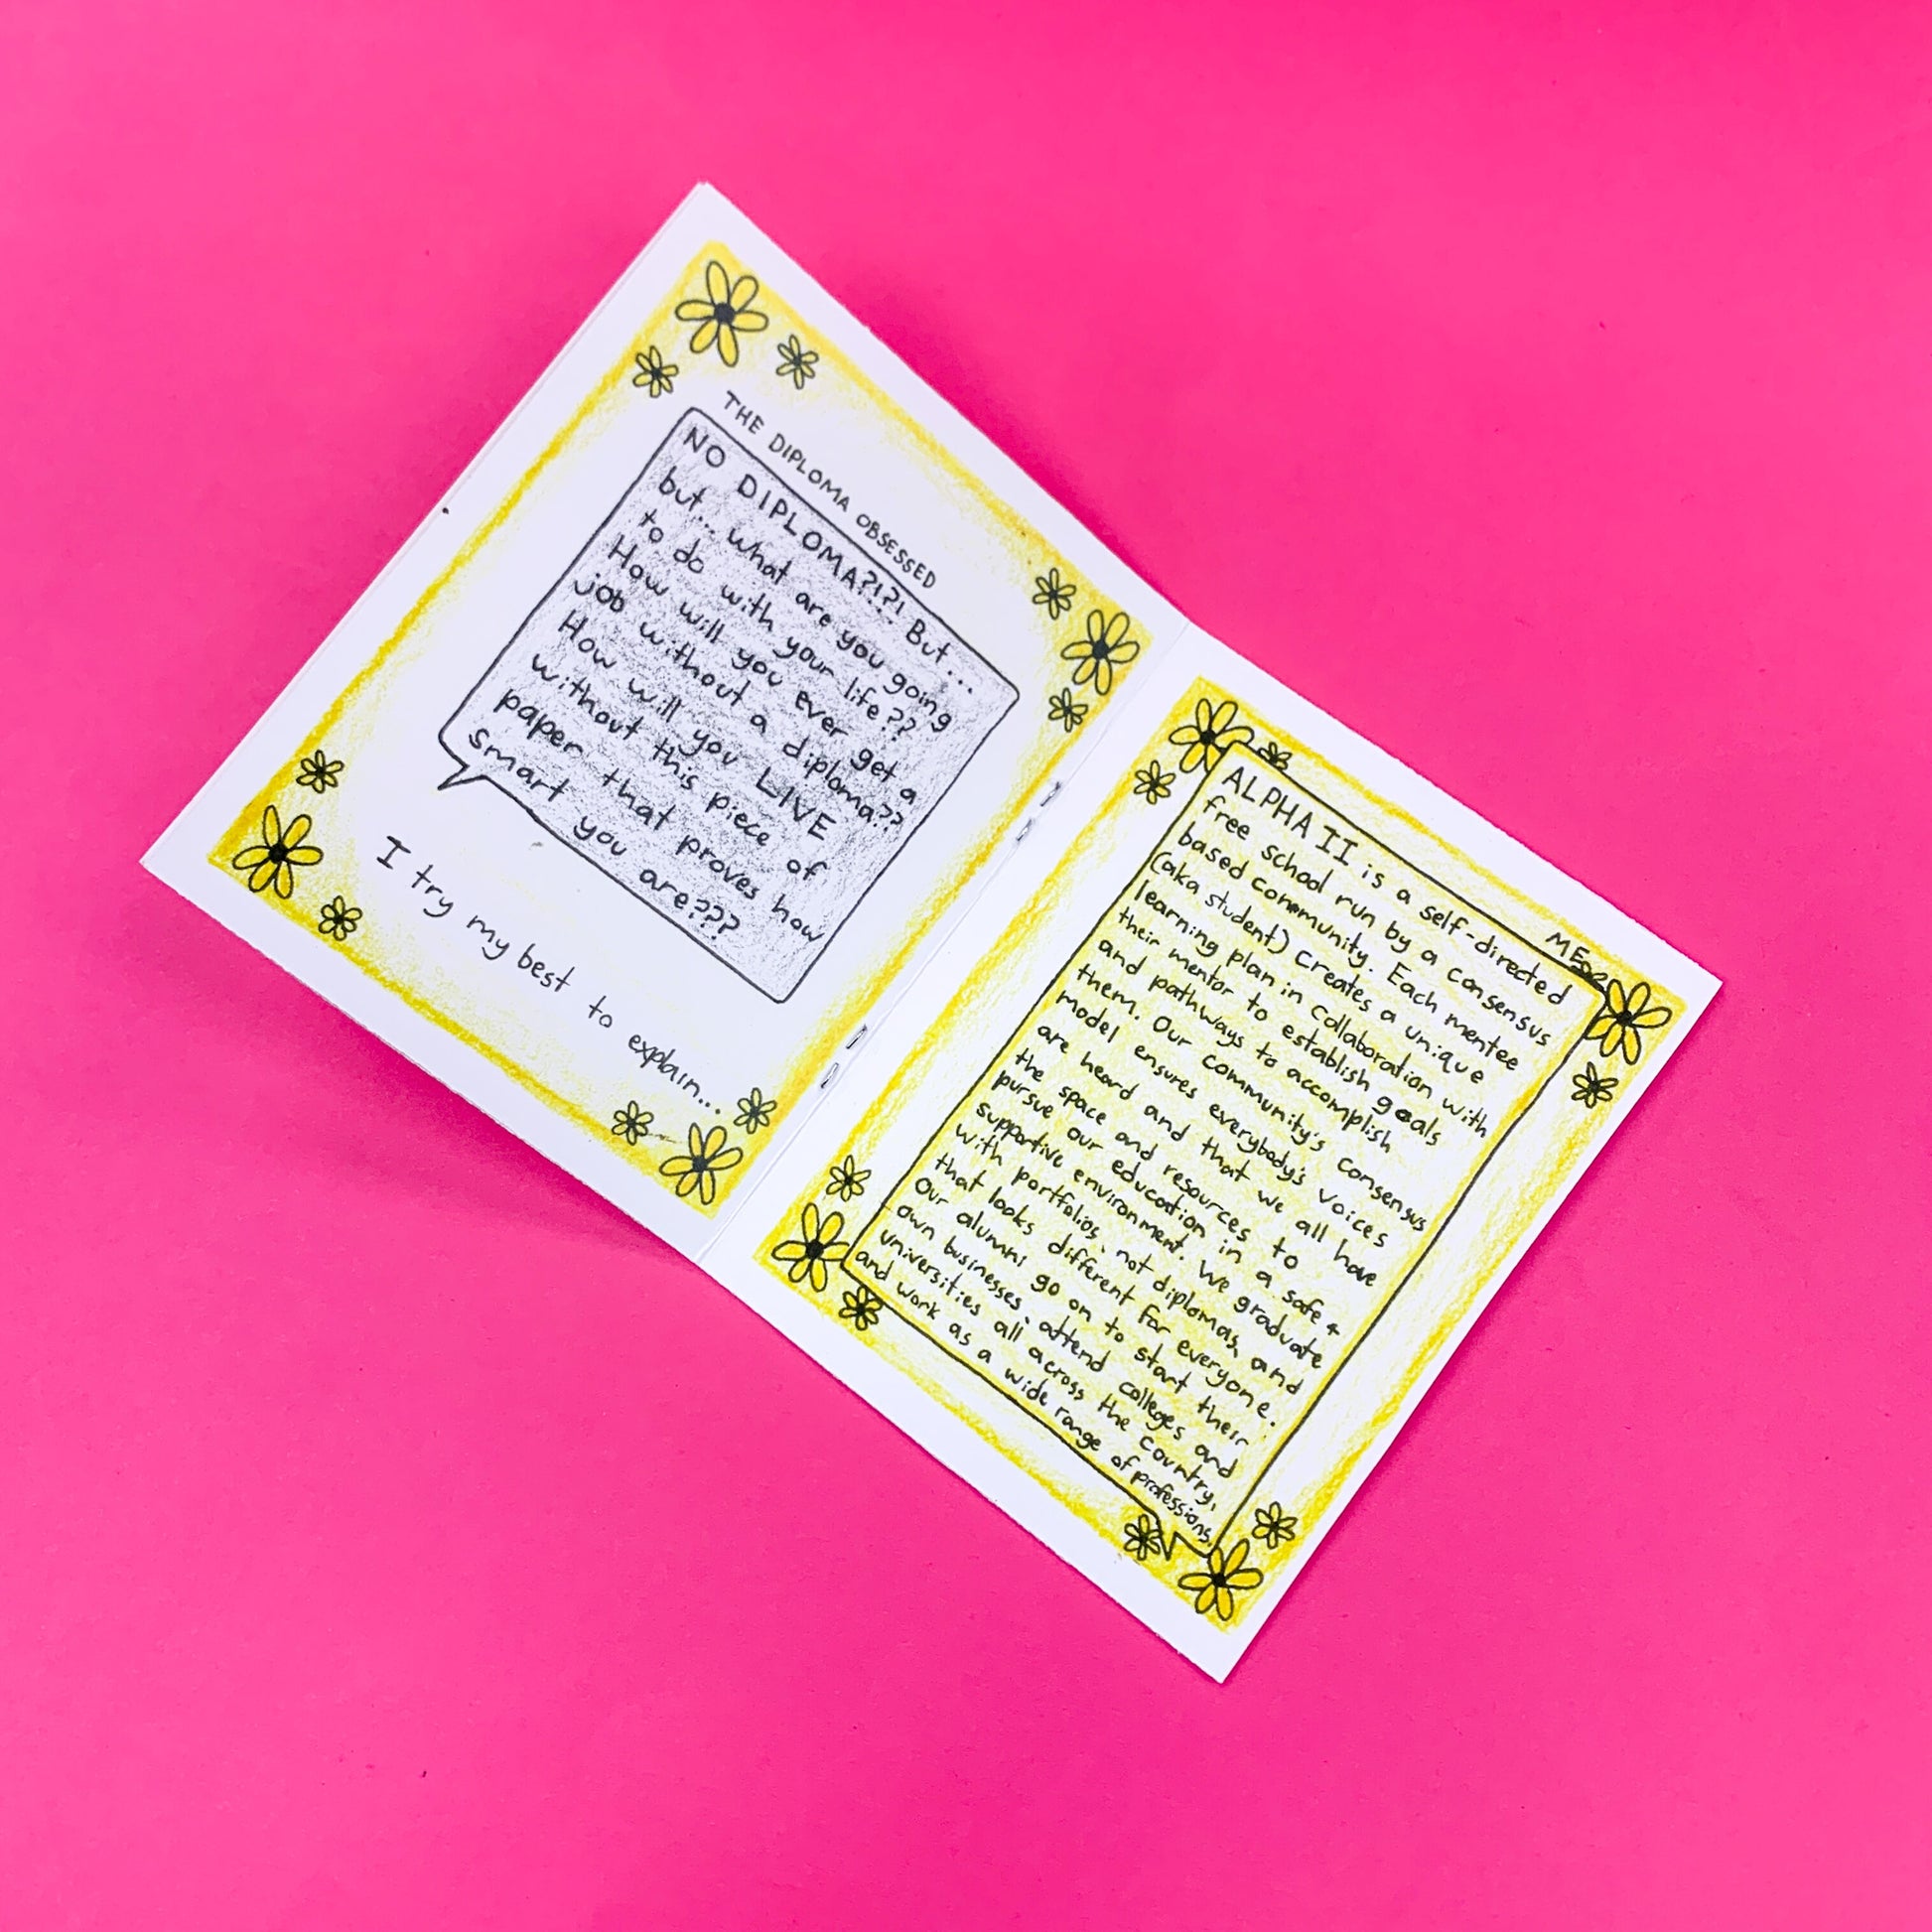 THE DIPLOMA OBSESSED
NO DIPLOMA?!?! But...
but... what are you going
to do with your life??
How will you ever get a
job without a diploma??
How will you LIVE
without this piece of
paper that proves how
smart you are???
I try my best to explain...
ME
ALPHA II is a self-directed
free school run by a consensus
based community. Each mentee
(aka student) creates a unique
learning plan in collaboration with
their mentor to establish goals
and pathways to accomplish
them. Our community's consensus
model ensures everybody's voices
are heard and that we all have
the space and resources to
pursue our education in a safe +
supportive environment. We graduate
with portfolios, not diplomas, and
that looks different for everyone.
Our alumni go on to start their
own businesses, attend colleges and
universities all across the country,
and work as a wide range of professions.